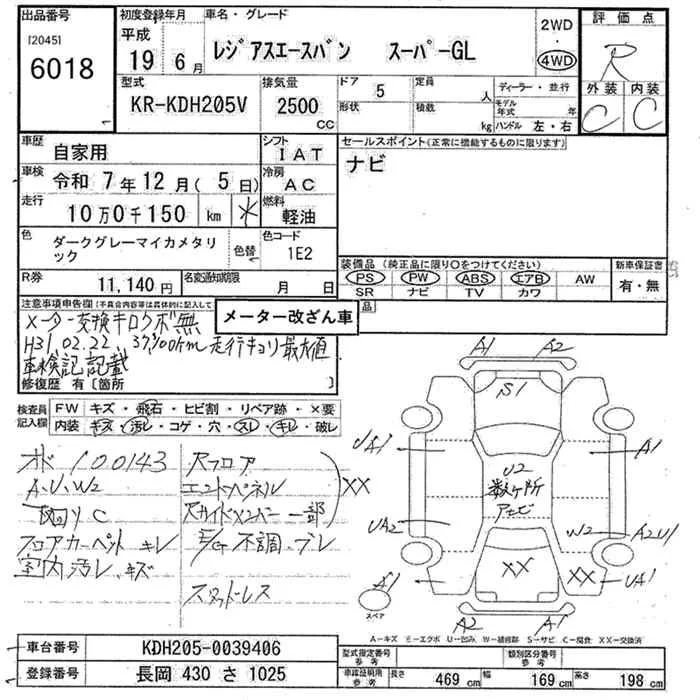 出品番号
[2045]
6018
初度登録年月
平成
19 6月
車名・グレード
レジアスエースバン スーパーGL
2WD
・
4WD
評価点
R
外装 内装
C C
型式
KR-KDH205V
排気量
2500 CC
ドア 5
形状
定員 人
積数 kg
ディーラー・並行
モデル年式 年
ハンドル 左・右
車歴 自家用
シフト IAT
車検 令和 7年12月(5日)
冷房 AC
走行 10万0千150 km *
燃料 軽油
色 ダークグレーマイカメタリック
色替
色コード 1E2
R券 11,140円
名変通知期限 月 日
セールスポイント(正常に機能するものに限ります)
ナビ
装備品(純正品に限り○をつけてください)
PS PW ABS エアB AW
SR ナビ TV カワ
新車保証書
有・無
注意事項申告欄(不具合内容等は具体的に記入して
メーター改ざん車
品
メーター交換キロクボ無
H31.02.22 37,900km 走行キョリ最大値
車検記記載
修復歴 有〔箇所 〕
検査員記入欄
FW キズ・飛石・ヒビ割・リペア跡・×要
内装 キズ・汚レ・コゲ・穴・スレ・キレ・破レ
オド 100143
A.U.W2
下回リ C
フロアカーペット キレ
室内汚レ.キズ
Rフロア
エンドパネル
Rサイドメンバー 一部
XX
E/G 不調.ブレ
スタッドレス
A1 A2
S1
UA1 A1
U2
数ヶ所
アセビ
UA2 W2 A2U1
XX XX UA1
A1
スペア
A2 A1
A-キズ E-エクボ U-凹み W-補修跡 S-サビ C-腐食 XX-交換済
車台番号 KDH205-0039406
登録番号 長岡 430 さ 1025
型式指定番号 参考
類別区分番号 参考
車庫証明用 参考
長さ 469 cm 幅 169 cm 高さ 198 cm